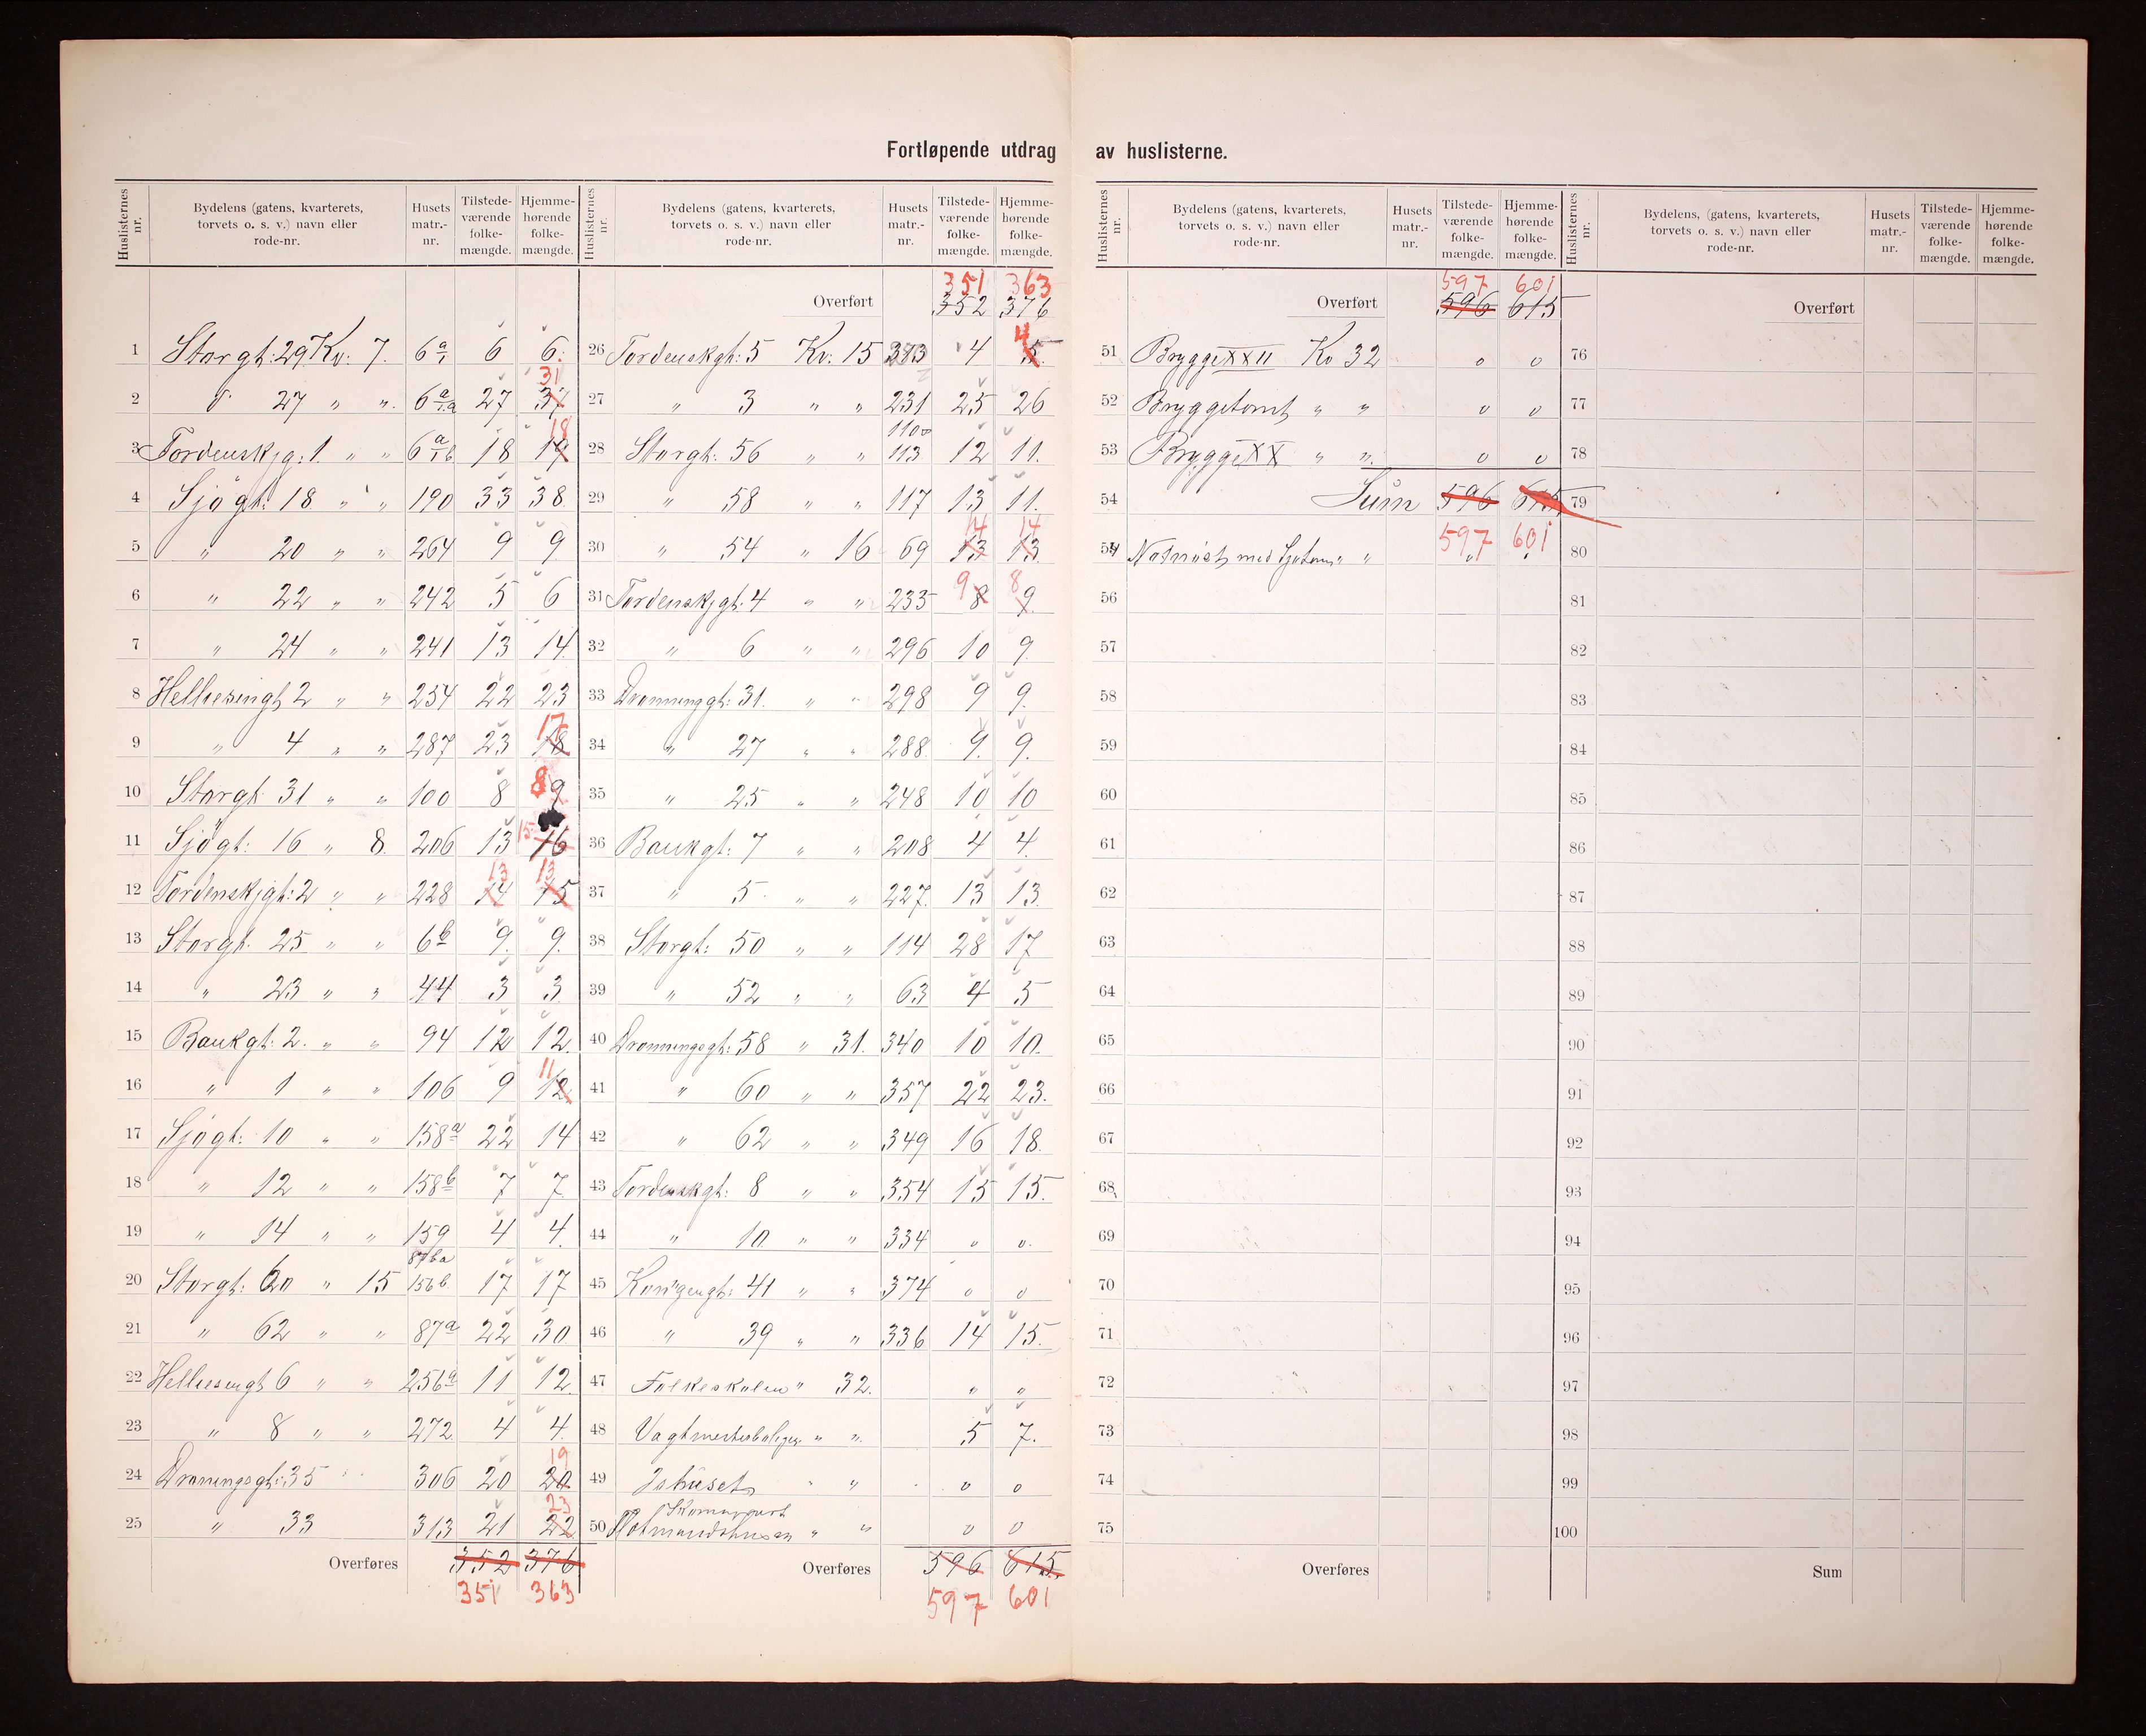 Fortløpende utdrag av huslisterne.
Huslisternes nr. Bydelens (gatens, kvarterets, torvets o. s. v.) navn eller rode-nr. Husets matr.-nr. Tilstede-værende folke-mængde. Hjemme-hørende folke-mængde.
1 Storgt: 29 Kv: 7. 6a 6 6.
2 " 27 " " 6a 1a 27 37 31
3 Tordenskjg: 1. " " 6a 1b 18 19 18
4 Sjøgt: 18 " " 190 33 38
5 " 20 " " 264 9 9
6 " 22 " " 242 5 6
7 " 24 " " 241 13 14.
8 Helliesengt 2 " " 254 22 23
9 " 4 " " 287 23 18 17
10 Storgt 31 " " 100 8 9 8
11 Sjøgt: 16 " 8. 206 13 16 15
12 Tordenskjgt: 2 " " 228 14 13 15 13
13 Storgt. 25 " " 6b 9. 9.
14 " 23 " " 44 3 3
15 Bankgt: 2. " " 94 12 12.
16 " 1 " " 106 9 12 11
17 Sjøgt: 10 " " 158a 22 14
18 " 12 " " 158b 7 7
19 " 14 " " 159 4 4.
20 Storgt: 60 " 15 87ba 156b. 17 17
21 " 62 " " 87a 22 30
22 Helliesengt 6 " " 256a 11 12.
23 " 8 " " 272 4 4.
24 Dronningsgt: 35 306 20 20 19
25 " 33 313 21 22 23
Overføres 352 376
351 363
Huslisternes nr. Bydelens (gatens, kvarterets, torvets o. s. v.) navn eller rode-nr. Husets matr.-nr. Tilstede-værende folke-mængde. Hjemme-hørende folke-mængde.
351 363
Overført 352 376
26 Tordenskgt: 5 Kv: 15 4 5 4
27 " 3 " " 231 25 26
28 Storgt: 56 " " 110 113 12 11.
29 " 58 " " 117 13 11.
30 " 54 " 16 69 13 14 13 14
31 Tordenskjgt. 4 " " 235 8 9 9 8
32 " 6 " " 296 10 9.
33 Dronninggt: 31. " " 298 9 9.
34 " 27 " " 288. 9. 9.
35 " 25 " " 248 10 10
36 Bankgt: 7 " " 208 4 4.
37 " 5. " " 227. 13 13.
38 Storgt: 50 " " 114 28 17
39 " 52 " " 63 4 5
40 Dronningsgt: 58 " 31. 340 10 10.
41 " 60 " " 357 22 23.
42 " 62 " " 349 16 18.
43 Tordenskgt: 8 " " 354 15 15.
44 " 10 " " 334 " 0.
45 Kongengt: 41 " " 374 0 0
46 " 39 " " 336 14 15.
47 Folkeskolen " 32. " "
48 Vagtmesterboligen " " 5 7.
49 Ishuset " " 0 0
50 " " 0 0
Overføres 596 615
597 601
Huslisternes nr. Bydelens (gatens, kvarterets, torvets o. s. v.) navn eller rode-nr. Husets matr.-nr. Tilstede-værende folke-mængde. Hjemme-hørende folke-mængde.
597 601
Overført 596 615
51 Brygge XXII Kv 32 0 0
52 Bryggetomt " " 0 0
53 Brygge XX " " 0 0
54 Sum 596 615
597 601
55 Notnøst med " "
56
57
58
59
60
61
62
63
64
65
66
67
68
69
70
71
72
73
74
75
Overføres
Huslisternes nr. Bydelens, (gatens, kvarterets, torvets o. s. v.) navn eller rode-nr. Husets matr.-nr. Tilstede-værende folke-mængde. Hjemme-hørende folke-mængde.
Overført
76
77
78
79
80
81
82
83
84
85
86
87
88
89
90
91
92
93
94
95
96
97
98
99
100
Sum